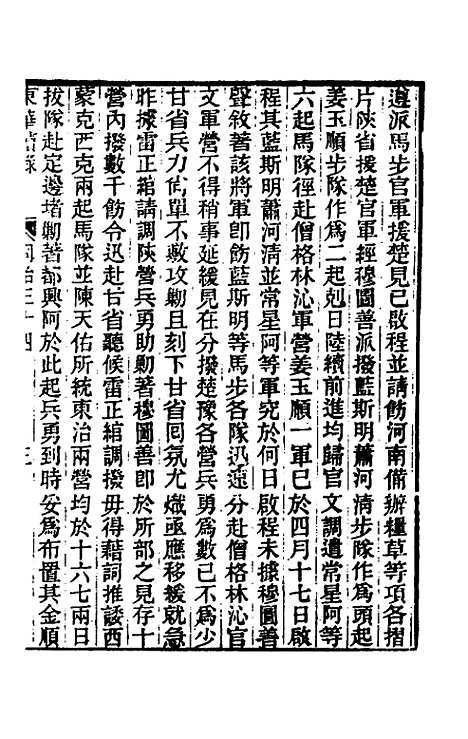 遵派馬步官軍援楚見已啟程並請飭河南備辦糧草等項各摺
片陝省援楚官軍經穆圖善派撥藍斯明蕭河清步隊作為頭起
姜玉順步隊作為二起剋日陸續前進均歸官文調遣常星阿等
六起馬隊徑赴僧格林沁軍營姜玉順一軍已於四月十七日啟
程其藍斯明蕭河清並常星阿等軍究於何日啟程未據穆圖善
聲敘著該將軍即飭藍斯明等馬步各隊迅速分赴僧格林沁官
文軍營不得稍事延緩見在分撥楚豫各營兵勇為數已不為少
甘省兵力尚單不敷攻勦且刻下甘省回氛尤熾亟應移援就急
昨據雷正綰請調陝營兵勇助勦著穆圖善即於所部之見存十
營內撥數千飭令迅赴甘省聽候雷正綰調撥毋得藉詞推諉西
蒙克西克兩起馬隊並陳天佑所統東治兩營均於十六七兩日
拔隊赴定邊堵勦著都興阿於此起兵勇到時妥為布置其金順
東華續錄 同治三十四 三